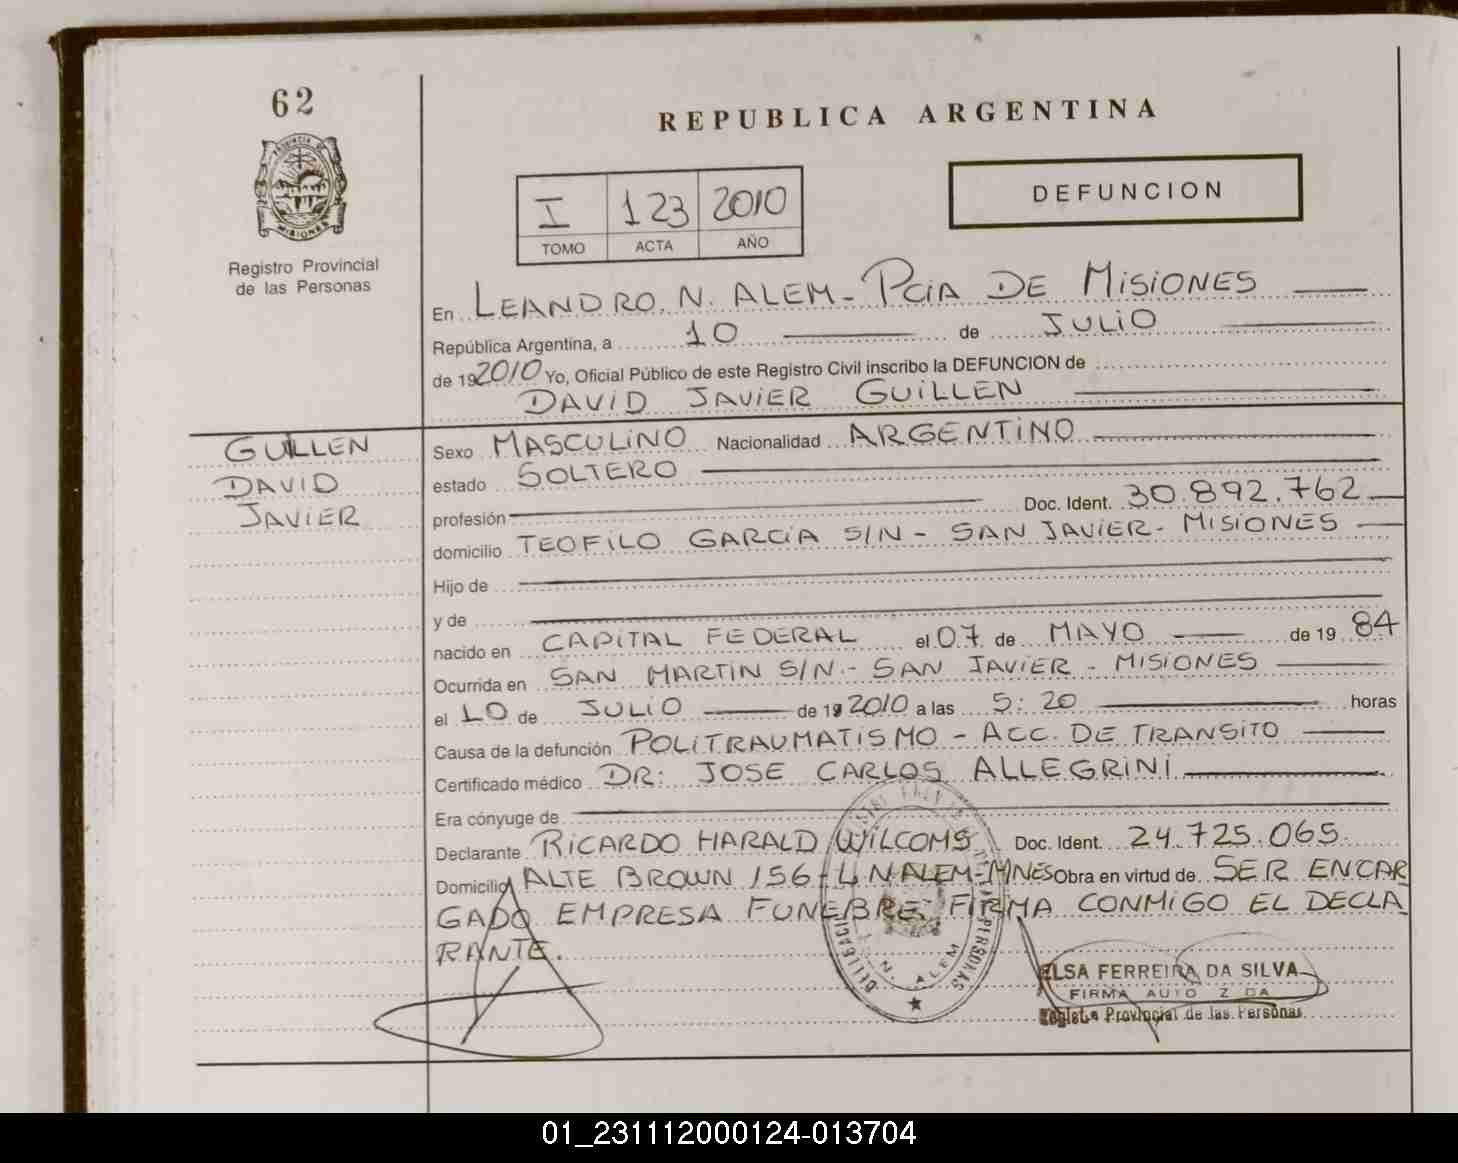 62
REPUBLICA ARGENTINA
PROVINCIA DE
MISIONES
Registro Provincial
de las Personas
I 123 2010
TOMO ACTA AÑO
DEFUNCION
En LEANDRO. N. ALEM - PCIA DE MISIONES
República Argentina, a 10 de JULIO
de 192010 Yo, Oficial Público de este Registro Civil inscribo la DEFUNCION de
DAVID JAVIER GUILLEN
GUILLEN
DAVID
JAVIER
Sexo MASCULINO Nacionalidad ARGENTINO
estado SOLTERO
profesión Doc. Ident. 30.892.762
domicilio TEOFILO GARCIA S/N - SAN JAVIER - MISIONES
Hijo de
y de
nacido en CAPITAL FEDERAL el 07 de MAYO de 19 84
Ocurrida en SAN MARTIN S/N - SAN JAVIER - MISIONES
el 10 de JULIO de 192010 a las 5:20 horas
Causa de la defunción POLITRAUMATISMO - ACC. DE TRANSITO
Certificado médico DR: JOSE CARLOS ALLEGRINI
Era cónyuge de
Declarante RICARDO HARALD WILCOMS Doc. Ident. 24.725.065
Domicilio ALTE BROWN 156 - L N ALEM - MNES Obra en virtud de SER ENCAR
GADO EMPRESA FUNEBRE. FIRMA CONMIGO EL DECLA
RANTE.
N. ALEM
ELSA FERREIRA DA SILVA
FIRMA
Registro Provincial de las Personas
01_231112000124-013704